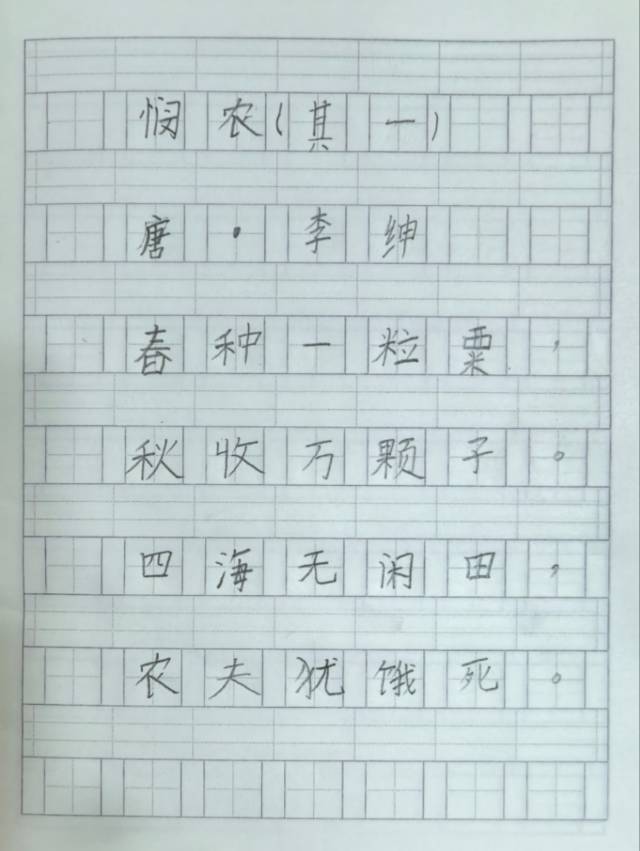 悯农(其一)
唐·李绅
春种一粒粟,
秋收万颗子。
四海无闲田,
农夫犹饿死。